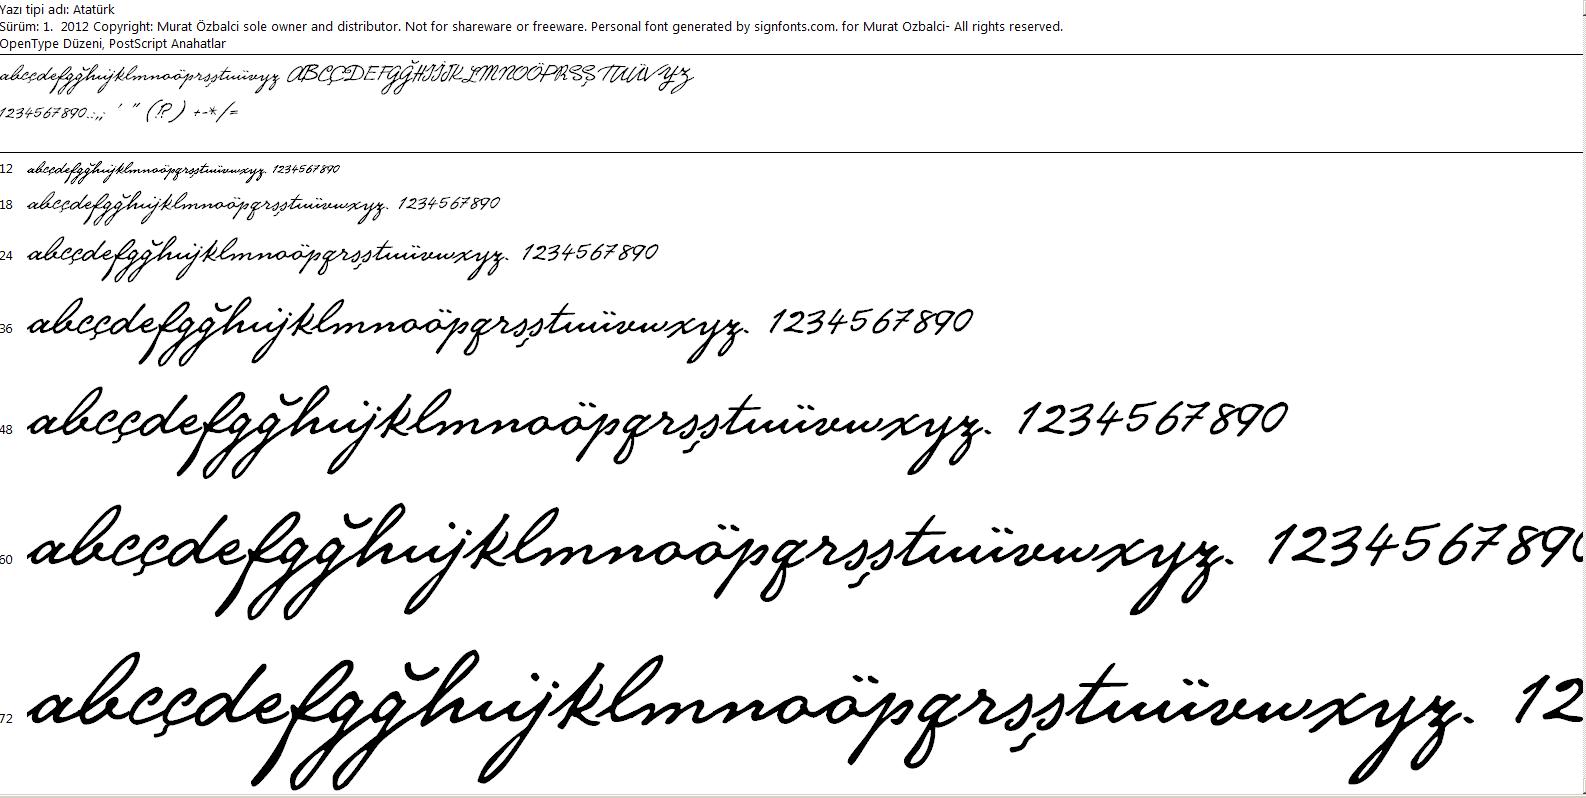 Yazı tipi adı: Atatürk
Sürüm: 1.  2012 Copyright: Murat Özbalci sole owner and distributor. Not for shareware or freeware. Personal font generated by signfonts.com. for Murat Ozbalci- All rights reserved.
OpenType Düzeni, PostScript Anahatlar
abcçdefgğhıijklmnoöprsştuüvyz ABCÇDEFGĞHIİJKLMNOÖPRSŞTUÜVYZ
1234567890.:,; ' " (!?) +-*/=
12 abcçdefgğhıijklmnoöpqrsştuüvwxyz. 1234567890
18 abcçdefgğhıijklmnoöpqrsştuüvwxyz. 1234567890
24 abcçdefgğhıijklmnoöpqrsştuüvwxyz. 1234567890
36 abcçdefgğhıijklmnoöpqrsştuüvwxyz. 1234567890
48 abcçdefgğhıijklmnoöpqrsştuüvwxyz. 1234567890
60 abcçdefgğhıijklmnoöpqrsştuüvwxyz. 1234567890
72 abcçdefgğhıijklmnoöpqrsştuüvwxyz. 12